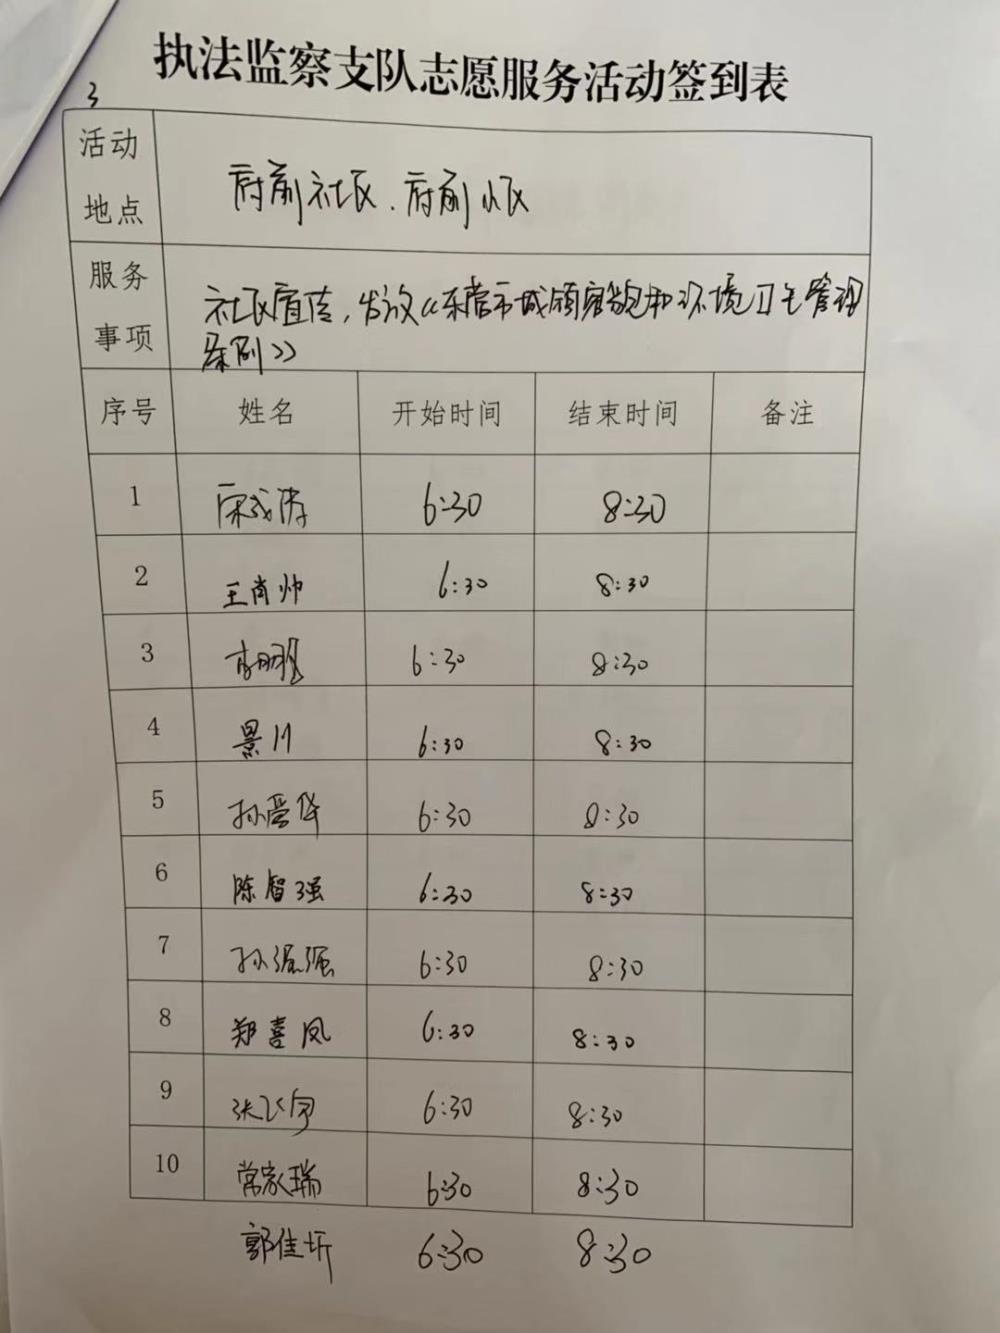 执法监察支队志愿服务活动签到表
3
活动地点 府前社区、府前小区
服务事项 社区宣传,发放《东营市城镇容貌和环境卫生管理
条例》
序号 姓名 开始时间 结束时间 备注
1 宋成涛 6:30 8:30
2 王肖帅 6:30 8:30
3 6:30 8:30
4 景川 6:30 8:30
5 6:30 8:30
6 陈智强 6:30 8:30
7 6:30 8:30
8 郑喜凤 6:30 8:30
9 张飞宇 6:30 8:30
10 常家瑞 6:30 8:30
郭佳圻 6:30 8:30